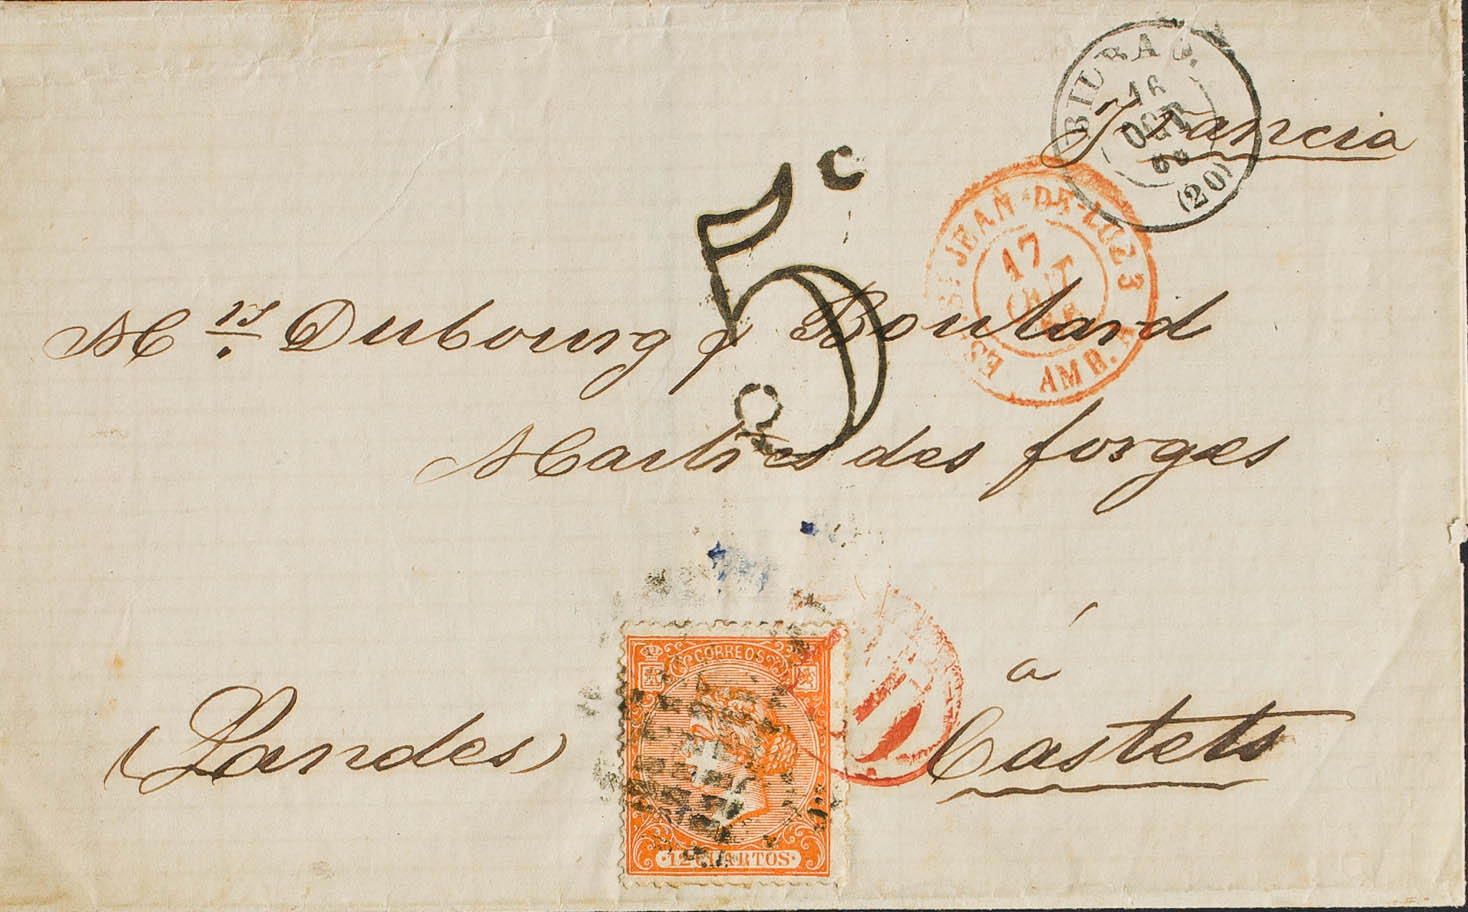 BILBAO.
16
OCT
66
(20)
Francia
ST JEAN-DE-LUZ 3
17
OCT
66
ESP. AMB. A
5c
Mrs. Dubourg y Boulard
Maitres des forges
á
(Landes) Castets
CORREOS
12 CUARTOS